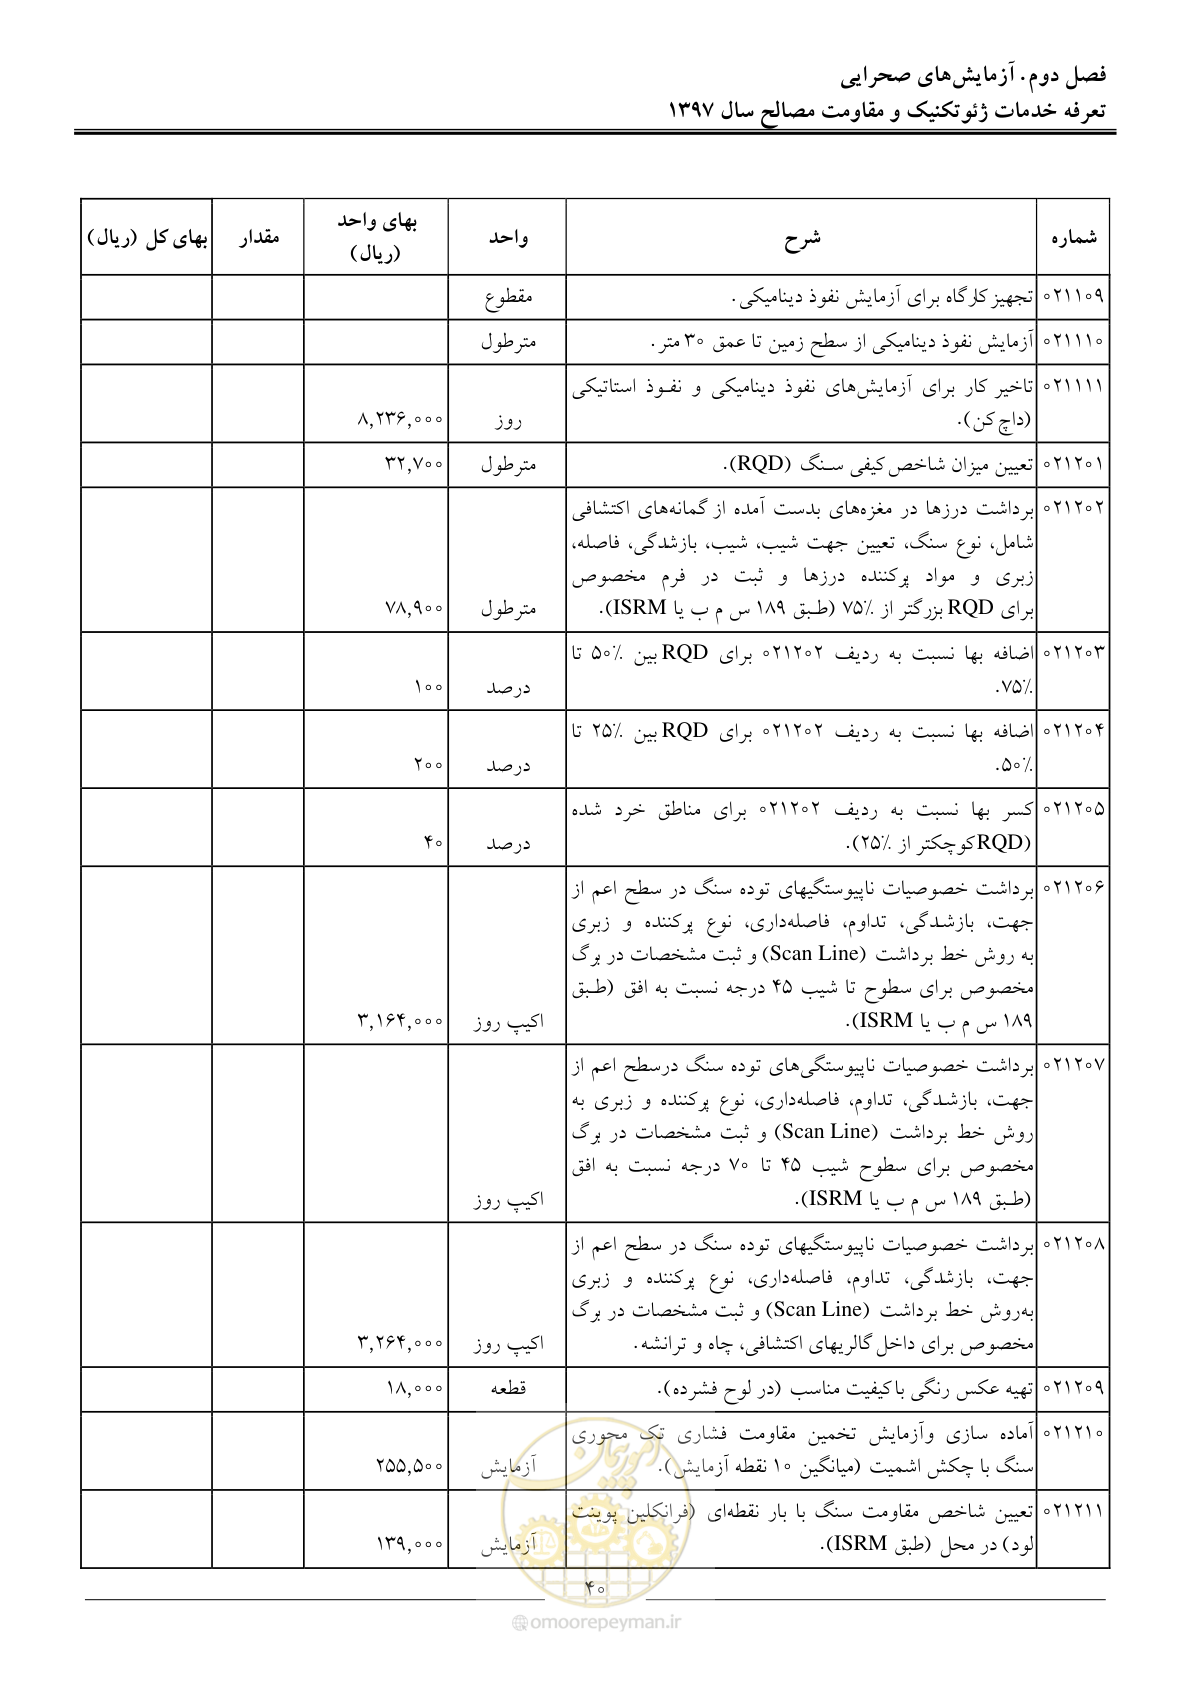 فصل دوم. آزمایش‌های صحرایی
تعرفه خدمات ژئوتکنیک و مقاومت مصالح سال ۱۳۹۷
شماره شرح واحد بهای واحد (ریال) مقدار بهای کل (ریال)
۰۲۱۱۰۹ تجهیز کارگاه برای آزمایش نفوذ دینامیکی. مقطوع
۰۲۱۱۱۰ آزمایش نفوذ دینامیکی از سطح زمین تا عمق ۳۰ متر. مترطول
۰۲۱۱۱۱ تاخیر کار برای آزمایش‌های نفوذ دینامیکی و نفوذ استاتیکی
(داچ کن). روز ۸,۲۳۶,۰۰۰
۰۲۱۲۰۱ تعیین میزان شاخص کیفی سنگ (RQD). مترطول ۳۲,۷۰۰
۰۲۱۲۰۲ برداشت درزها در مغزه‌های بدست آمده از گمانه‌های اکتشافی
شامل، نوع سنگ، تعیین جهت شیب، شیب، بازشدگی، فاصله،
زبری و مواد پرکننده درزها و ثبت در فرم مخصوص
برای RQD بزرگتر از ۷۵٪ (طبق ۱۸۹ س م ب یا ISRM). مترطول ۷۸,۹۰۰
۰۲۱۲۰۳ اضافه بها نسبت به ردیف ۰۲۱۲۰۲ برای RQD بین ۵۰٪ تا
۷۵٪. درصد ۱۰۰
۰۲۱۲۰۴ اضافه بها نسبت به ردیف ۰۲۱۲۰۲ برای RQD بین ۲۵٪ تا
۵۰٪. درصد ۲۰۰
۰۲۱۲۰۵ کسر بها نسبت به ردیف ۰۲۱۲۰۲ برای مناطق خرد شده
(RQD کوچکتر از ۲۵٪). درصد ۴۰
۰۲۱۲۰۶ برداشت خصوصیات ناپیوستگیهای توده سنگ در سطح اعم از
جهت، بازشدگی، تداوم، فاصله‌داری، نوع پرکننده و زبری
به روش خط برداشت (Scan Line) و ثبت مشخصات در برگ
مخصوص برای سطوح تا شیب ۴۵ درجه نسبت به افق (طبق
۱۸۹ س م ب یا ISRM). اکیپ روز ۳,۱۶۴,۰۰۰
۰۲۱۲۰۷ برداشت خصوصیات ناپیوستگی‌های توده سنگ درسطح اعم از
جهت، بازشدگی، تداوم، فاصله‌داری، نوع پرکننده و زبری به
روش خط برداشت (Scan Line) و ثبت مشخصات در برگ
مخصوص برای سطوح شیب ۴۵ تا ۷۰ درجه نسبت به افق
(طبق ۱۸۹ س م ب یا ISRM). اکیپ روز
۰۲۱۲۰۸ برداشت خصوصیات ناپیوستگیهای توده سنگ در سطح اعم از
جهت، بازشدگی، تداوم، فاصله‌داری، نوع پرکننده و زبری
به‌روش خط برداشت (Scan Line) و ثبت مشخصات در برگ
مخصوص برای داخل گالریهای اکتشافی، چاه و ترانشه. اکیپ روز ۳,۲۶۴,۰۰۰
۰۲۱۲۰۹ تهیه عکس رنگی باکیفیت مناسب (در لوح فشرده). قطعه ۱۸,۰۰۰
۰۲۱۲۱۰ آماده سازی وآزمایش تخمین مقاومت فشاری تک محوری
سنگ با چکش اشمیت (میانگین ۱۰ نقطه آزمایش). آزمایش ۲۵۵,۵۰۰
۰۲۱۲۱۱ تعیین شاخص مقاومت سنگ با بار نقطه‌ای (فرانکلین پوینت
لود) در محل (طبق ISRM). آزمایش ۱۳۹,۰۰۰
امور پیمان
۴۰
@omoorepeyman.ir